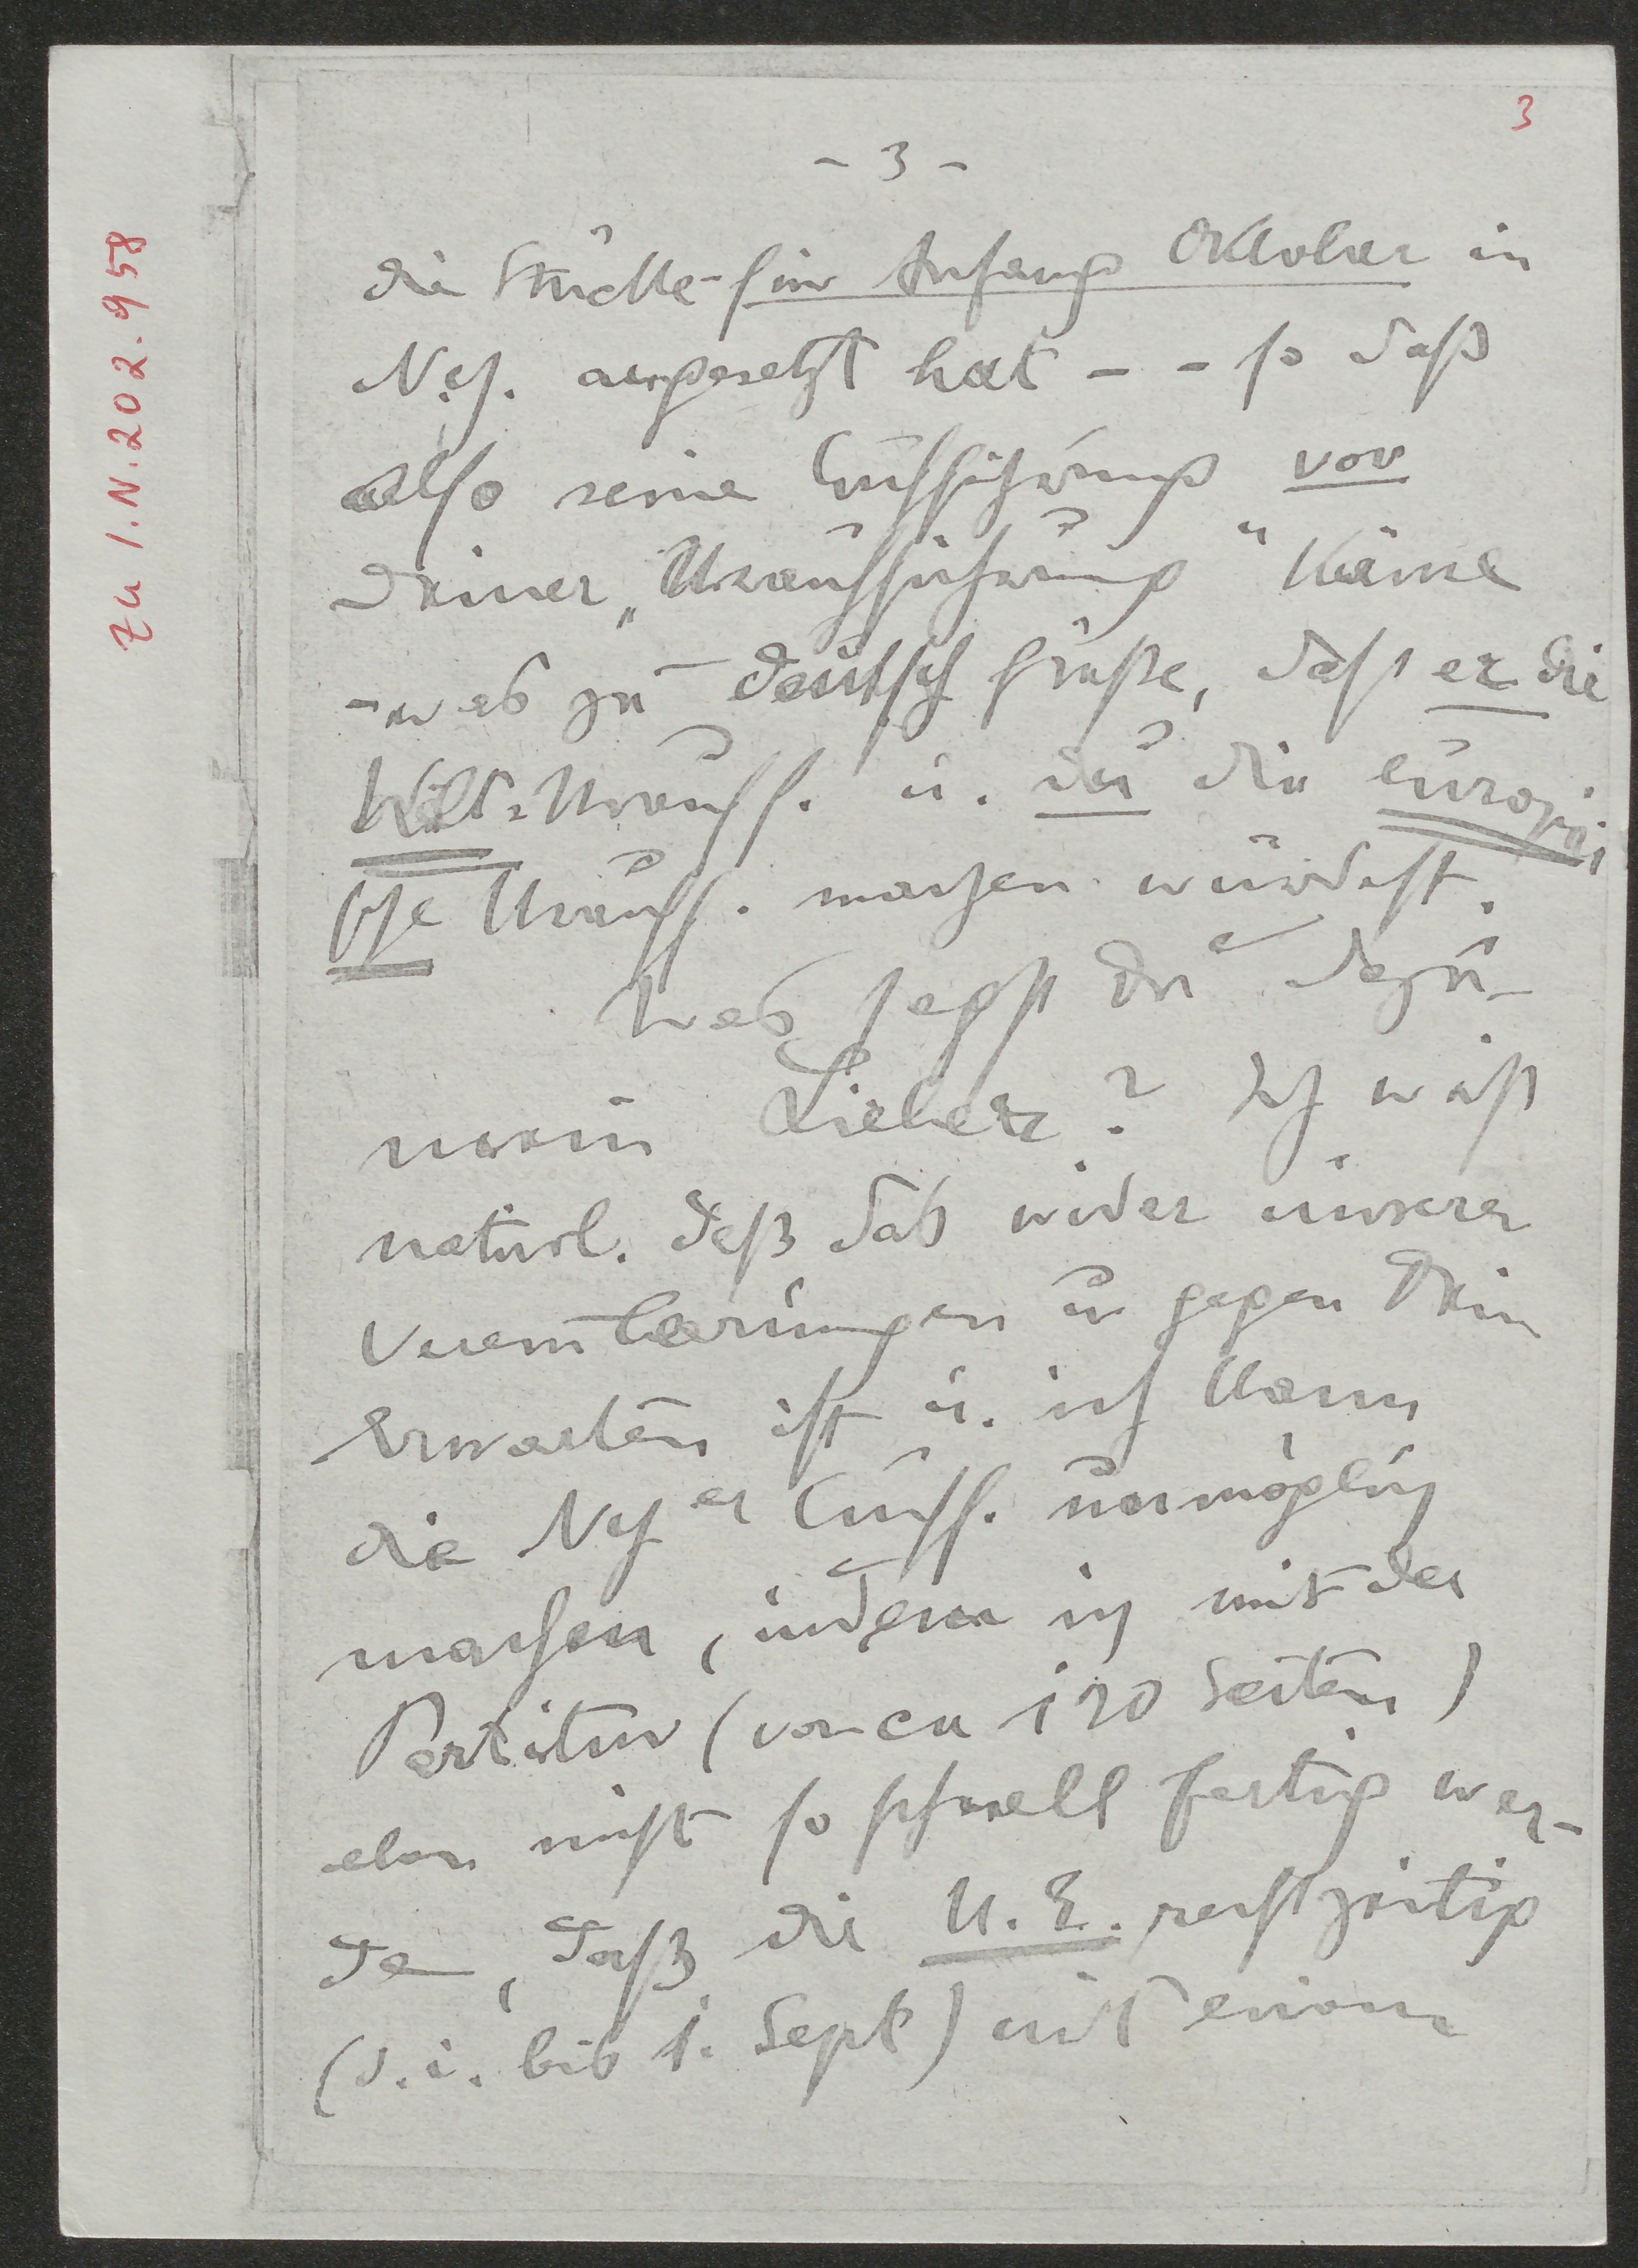 3
- 3 -
Zu I.N. 202.958
die Stücke für Anfang Oktober in
N.Y. angesetzt hat - - so daß
also seine Aufführung vor
Deiner „Uraufführung" käme
- was zu deutsch hieße, daß er die
Welt-Urauff. u. du die europäi
sche Urauff. machen würdest.
Was sagst Du dazu
mein Lieber? Ich weiß
natürl. daß das wider unsere
Vereinbarungen u gegen Dein
Erwarten ist u. ich kann
die NYer Auff. unmöglich
machen, indem ich mit der
Partitur (von ca 120 Seiten)
eben nicht so schnell fertig wer-
de, daß die U.E. rechtzeitig
(d.i. bis 1. Sept) mit einem